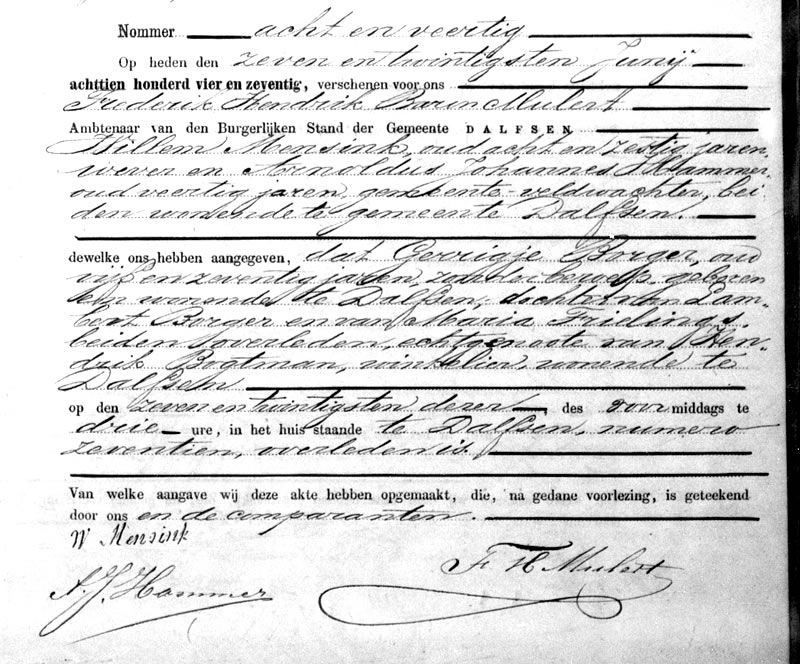 Nommer acht en veertig
Op heden den zeven en twintigsten Junij
achttien honderd vier en zeventig, verschenen voor ons
Frederik Hendrik Baron Mulert
Ambtenaar van den Burgerlijken Stand der Gemeente DALFSEN
Willem Mensink, oud acht en zestig jaren,
wever en Arnoldus Johannes Hammer
oud veertig jaren, gemeente veldwachter, bei
den wonende te gemeente Dalfsen.
dewelke ons hebben aangegeven, dat Gerrigje Borger, oud
vijf en zeventig jaren, zonder beroep, geboren
en wonende te Dalfsen, dochter van Lam-
bert Borger en van Maria Frielings,
beiden overleden, echtgenoote van Hen-
drik Bogtman, winkelier, wonende te
Dalfsen
op den zeven en twintigsten dezer, des voor middags te
drie ure, in het huis staande te Dalfsen, numero
zeventien, overleden is.
Van welke aangave wij deze akte hebben opgemaakt, die, na gedane voorlezing, is geteekend
door ons en de comparanten.
W Mensink
F H Mulert
A. J. Hammer